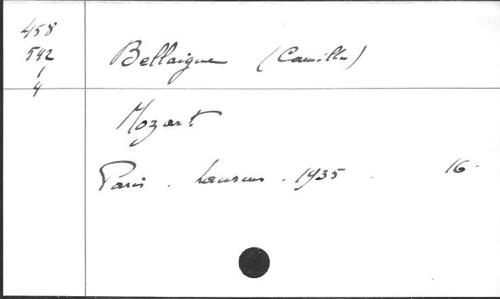 458
542
1
4
Bellaigue (Camille)
Mozart
Paris . Laurens . 1935 . 16